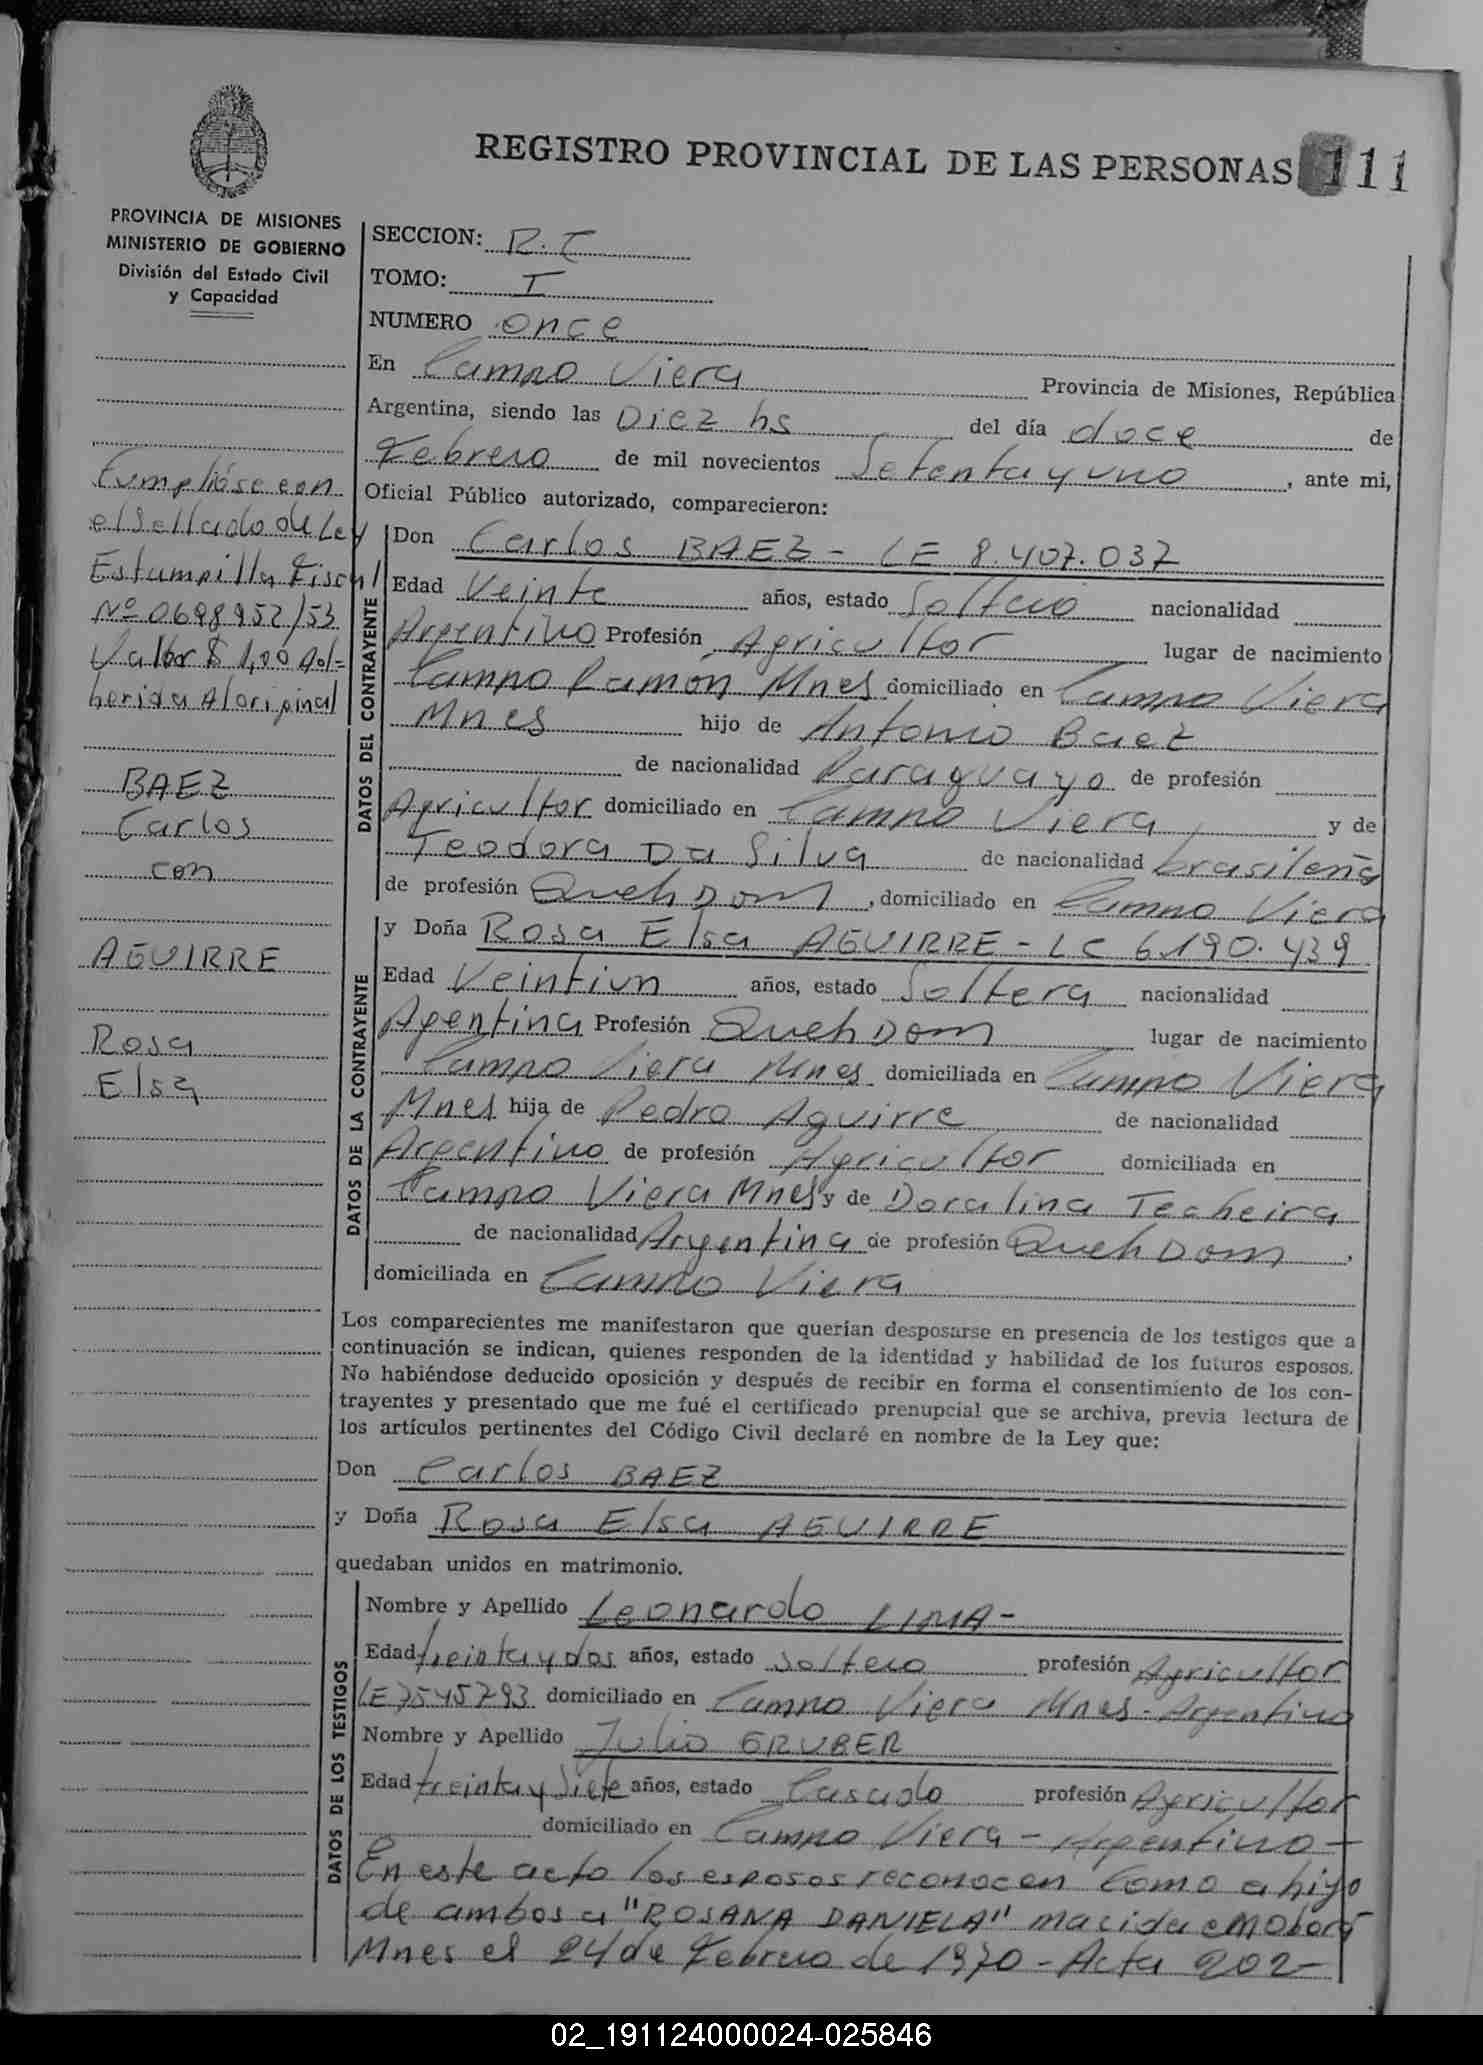 REGISTRO PROVINCIAL DE LAS PERSONAS 111
PROVINCIA DE MISIONES
MINISTERIO DE GOBIERNO
División del Estado Civil
y Capacidad
Cumplióse con
el Sellado de Ley
Estampilla Fiscal
Nº 0698952/53
Valor $ 1,00 Ad=
herida Al original
BAEZ
Carlos
con
AGUIRRE
Rosa
Elsa
SECCION: R.C
TOMO: I
NUMERO once
En Campo Viera Provincia de Misiones, República
Argentina, siendo las Diez hs del día doce de
Febrero de mil novecientos Setenta y uno, ante mi,
Oficial Público autorizado, comparecieron:
DATOS DEL CONTRAYENTE
Don Carlos BAEZ - LE 8.407.037
Edad Veinte años, estado Soltero nacionalidad
Argentino Profesión Agricultor lugar de nacimiento
Campo Ramón Mnes domiciliado en Campo Viera
Mnes hijo de Antonio Baez
de nacionalidad Paraguayo de profesión
Agricultor domiciliado en Campo Viera y de
Teodora Da Silva de nacionalidad brasileña
de profesión Queh Dom, domiciliado en Campo Viera
DATOS DE LA CONTRAYENTE
y Doña Rosa Elsa AGUIRRE - LC 6.190.439
Edad Veintiun años, estado Soltera nacionalidad
Agentina Profesión Queh Dom lugar de nacimiento
Campo Viera Mnes domiciliada en Campo Viera
Mnes hija de Pedro Aguirre de nacionalidad
Argentino de profesión Agricultor domiciliada en
Campo Viera Mnes y de Doralina Techeira
de nacionalidad Argentina de profesión Queh Dom,
domiciliada en Campo Viera
Los comparecientes me manifestaron que querían desposarse en presencia de los testigos que a
continuación se indican, quienes responden de la identidad y habilidad de los futuros esposos.
No habiéndose deducido oposición y después de recibir en forma el consentimiento de los con-
trayentes y presentado que me fué el certificado prenupcial que se archiva, previa lectura de
los artículos pertinentes del Código Civil declaré en nombre de la Ley que:
Don Carlos BAEZ
y Doña Rosa Elsa AGUIRRE
quedaban unidos en matrimonio.
DATOS DE LOS TESTIGOS
Nombre y Apellido Leonardo LIMA -
Edad treinta y dos años, estado soltero profesión Agricultor
LE 7545793 domiciliado en Campo Viera Mnes - Argentino
Nombre y Apellido Julio GRUBER
Edad treinta y Siete años, estado Casado profesión Agricultor
domiciliado en Campo Viera - Argentino -
En este acto los esposos reconocen Como a hijo
de ambos a "ROSANA DANIELA" nacida em Oberá
Mnes el 24 de Febrero de 1970 - Acta 202 -
02_191124000024-025846